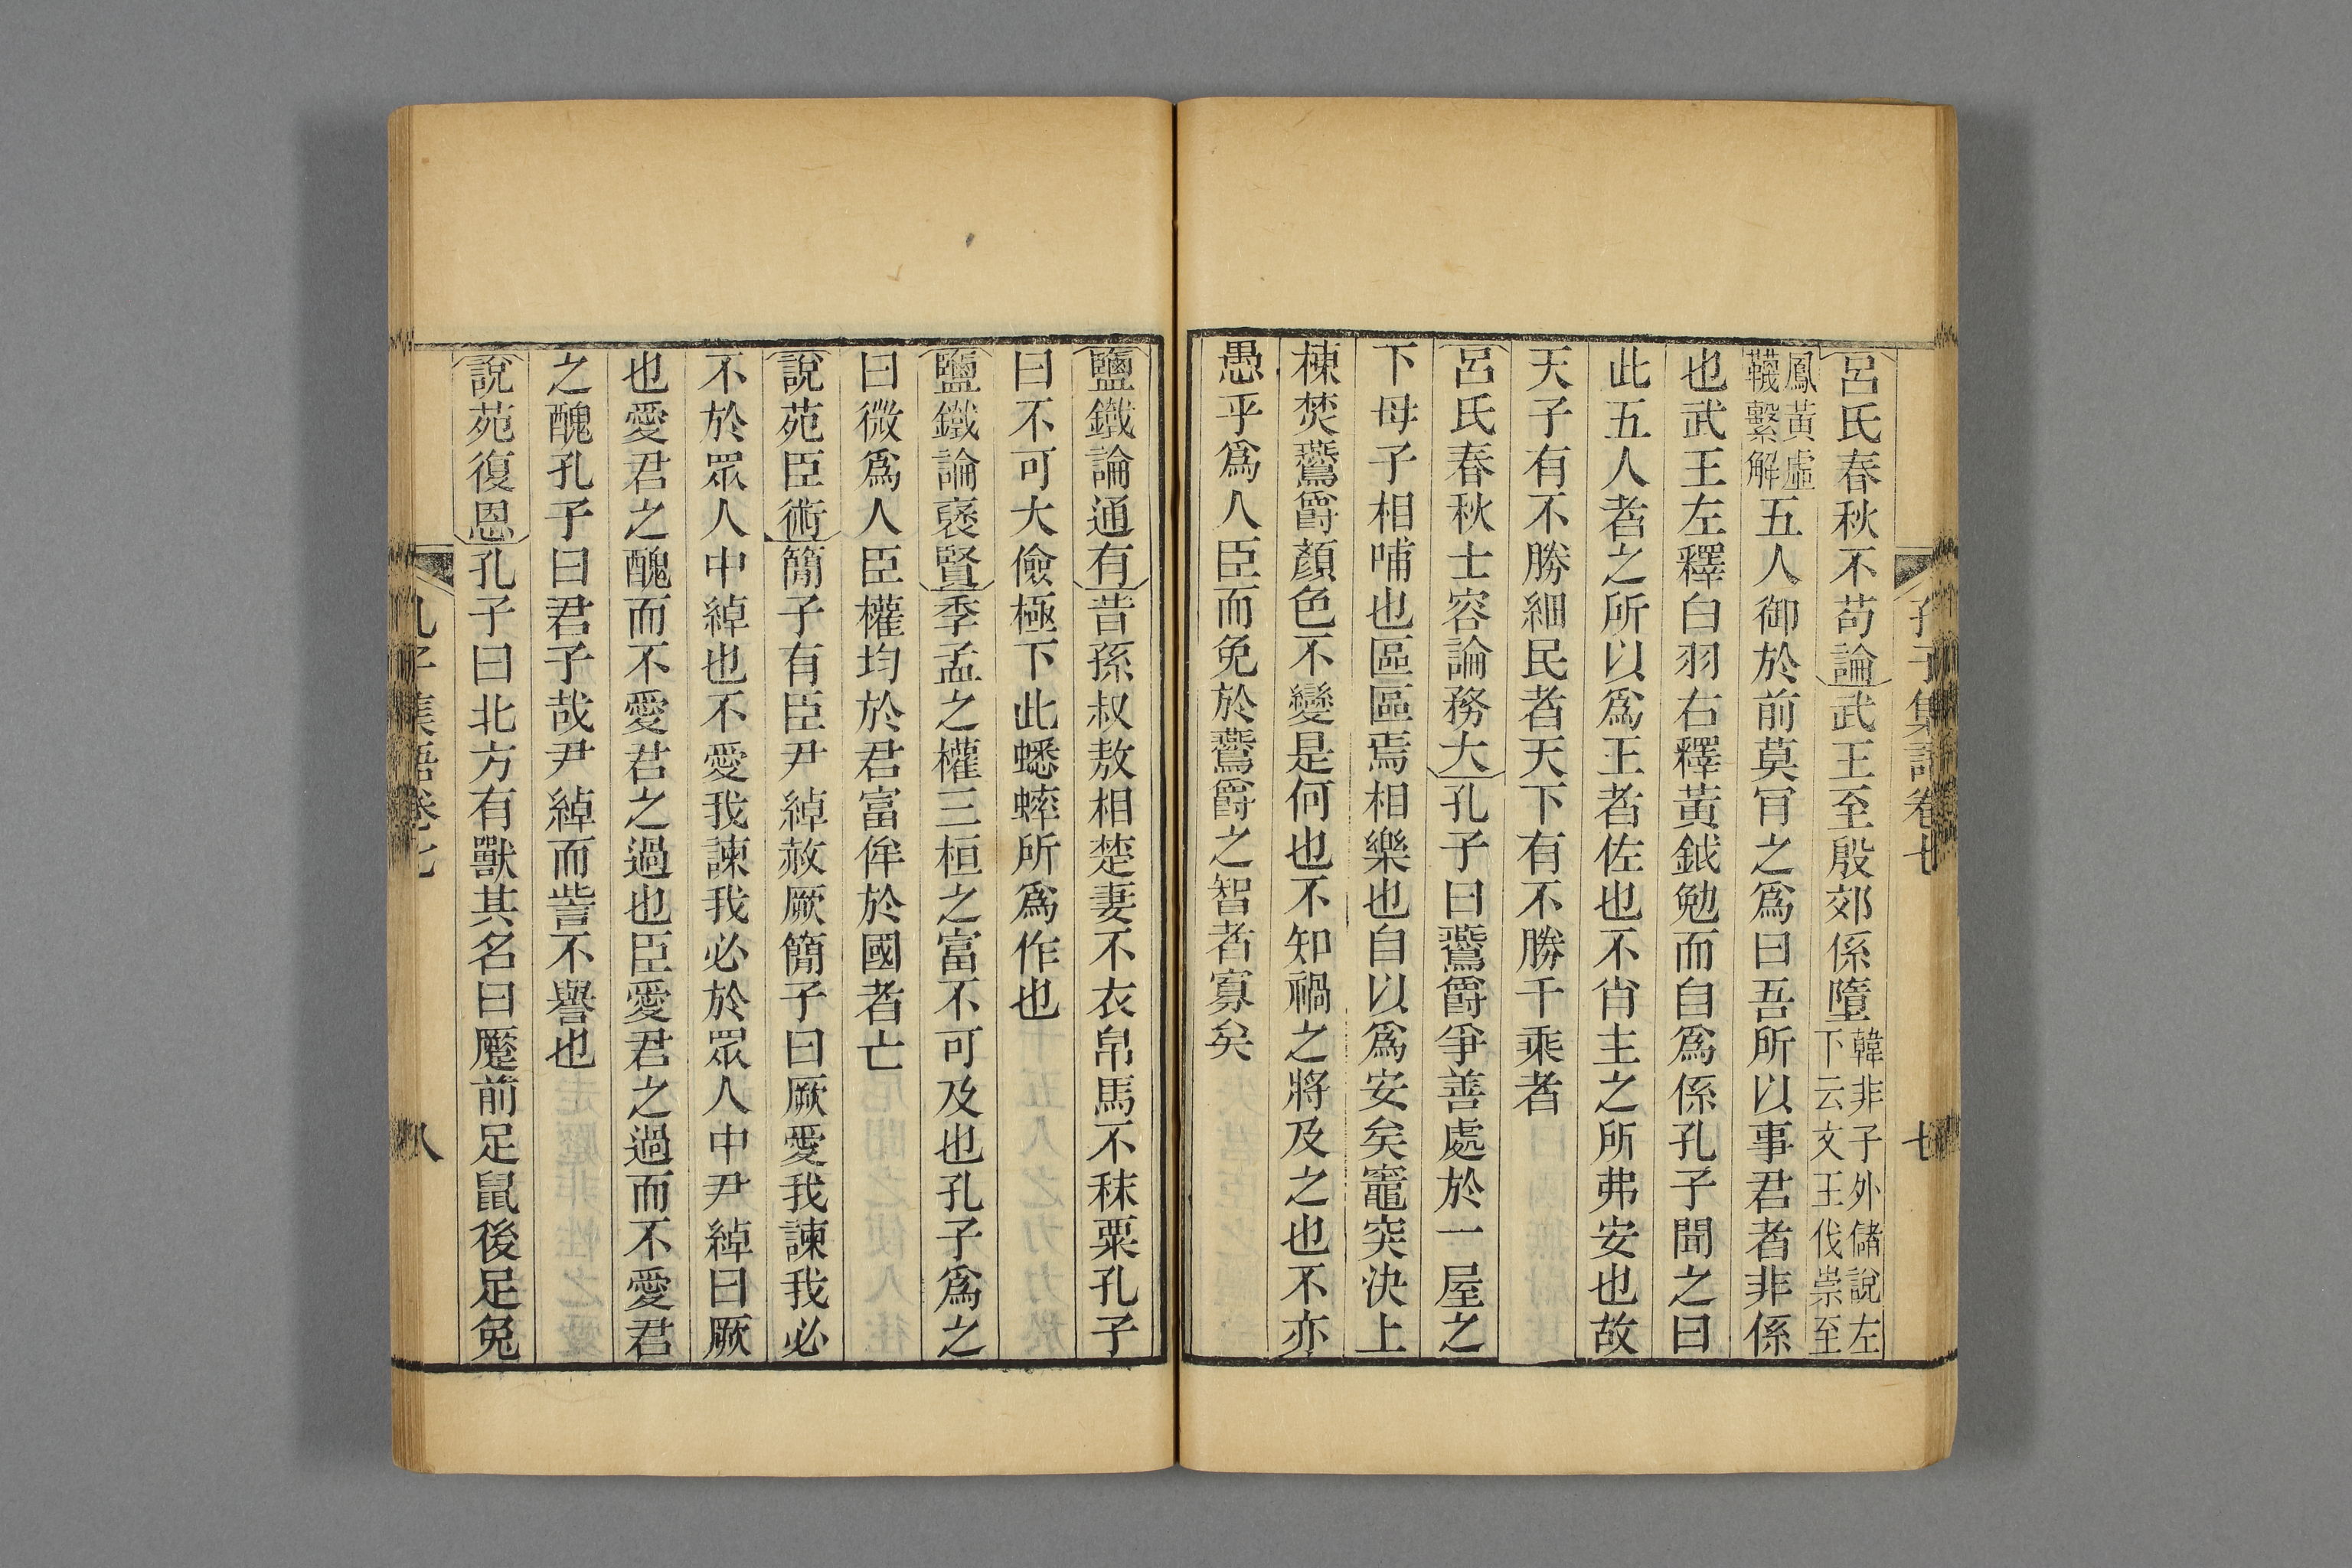 孔子集語卷七 七
呂氏春秋不苟論武王至殷郊係墮韓非子外儲說左下云文王伐崇至
鳳黃虛韈繫解五人御於前莫肎之爲曰吾所以事君者非係
也武王左釋白羽右釋黃鉞勉而自爲係孔子聞之曰
此五人者之所以爲王者佐也不肖主之所弗安也故
天子有不勝細民者天下有不勝千乘者
呂氏春秋士容論務大孔子曰鷰爵爭善處於一屋之
下母子相哺也區區焉相樂也自以爲安矣竈突決上
棟焚鷰爵顏色不變是何也不知禍之將及之也不亦
愚乎爲人臣而免於鷰爵之智者寡矣
鹽鐵論通有昔孫叔敖相楚妻不衣帛馬不秣粟孔子
曰不可大儉極下此蟋蟀所爲作也
鹽鐵論襃賢季孟之權三桓之富不可及也孔子爲之
曰微爲人臣權均於君富侔於國者亡
說苑臣術簡子有臣尹綽赦厥簡子曰厥愛我諫我必
不於眾人中綽也不愛我諫我必於眾人中尹綽曰厥
也愛君之醜而不愛君之過也臣愛君之過而不愛君
之醜孔子曰君子哉尹綽而訾不譽也
說苑復恩孔子曰北方有獸其名曰蹷前足鼠後足兔
孔子集語卷七 八